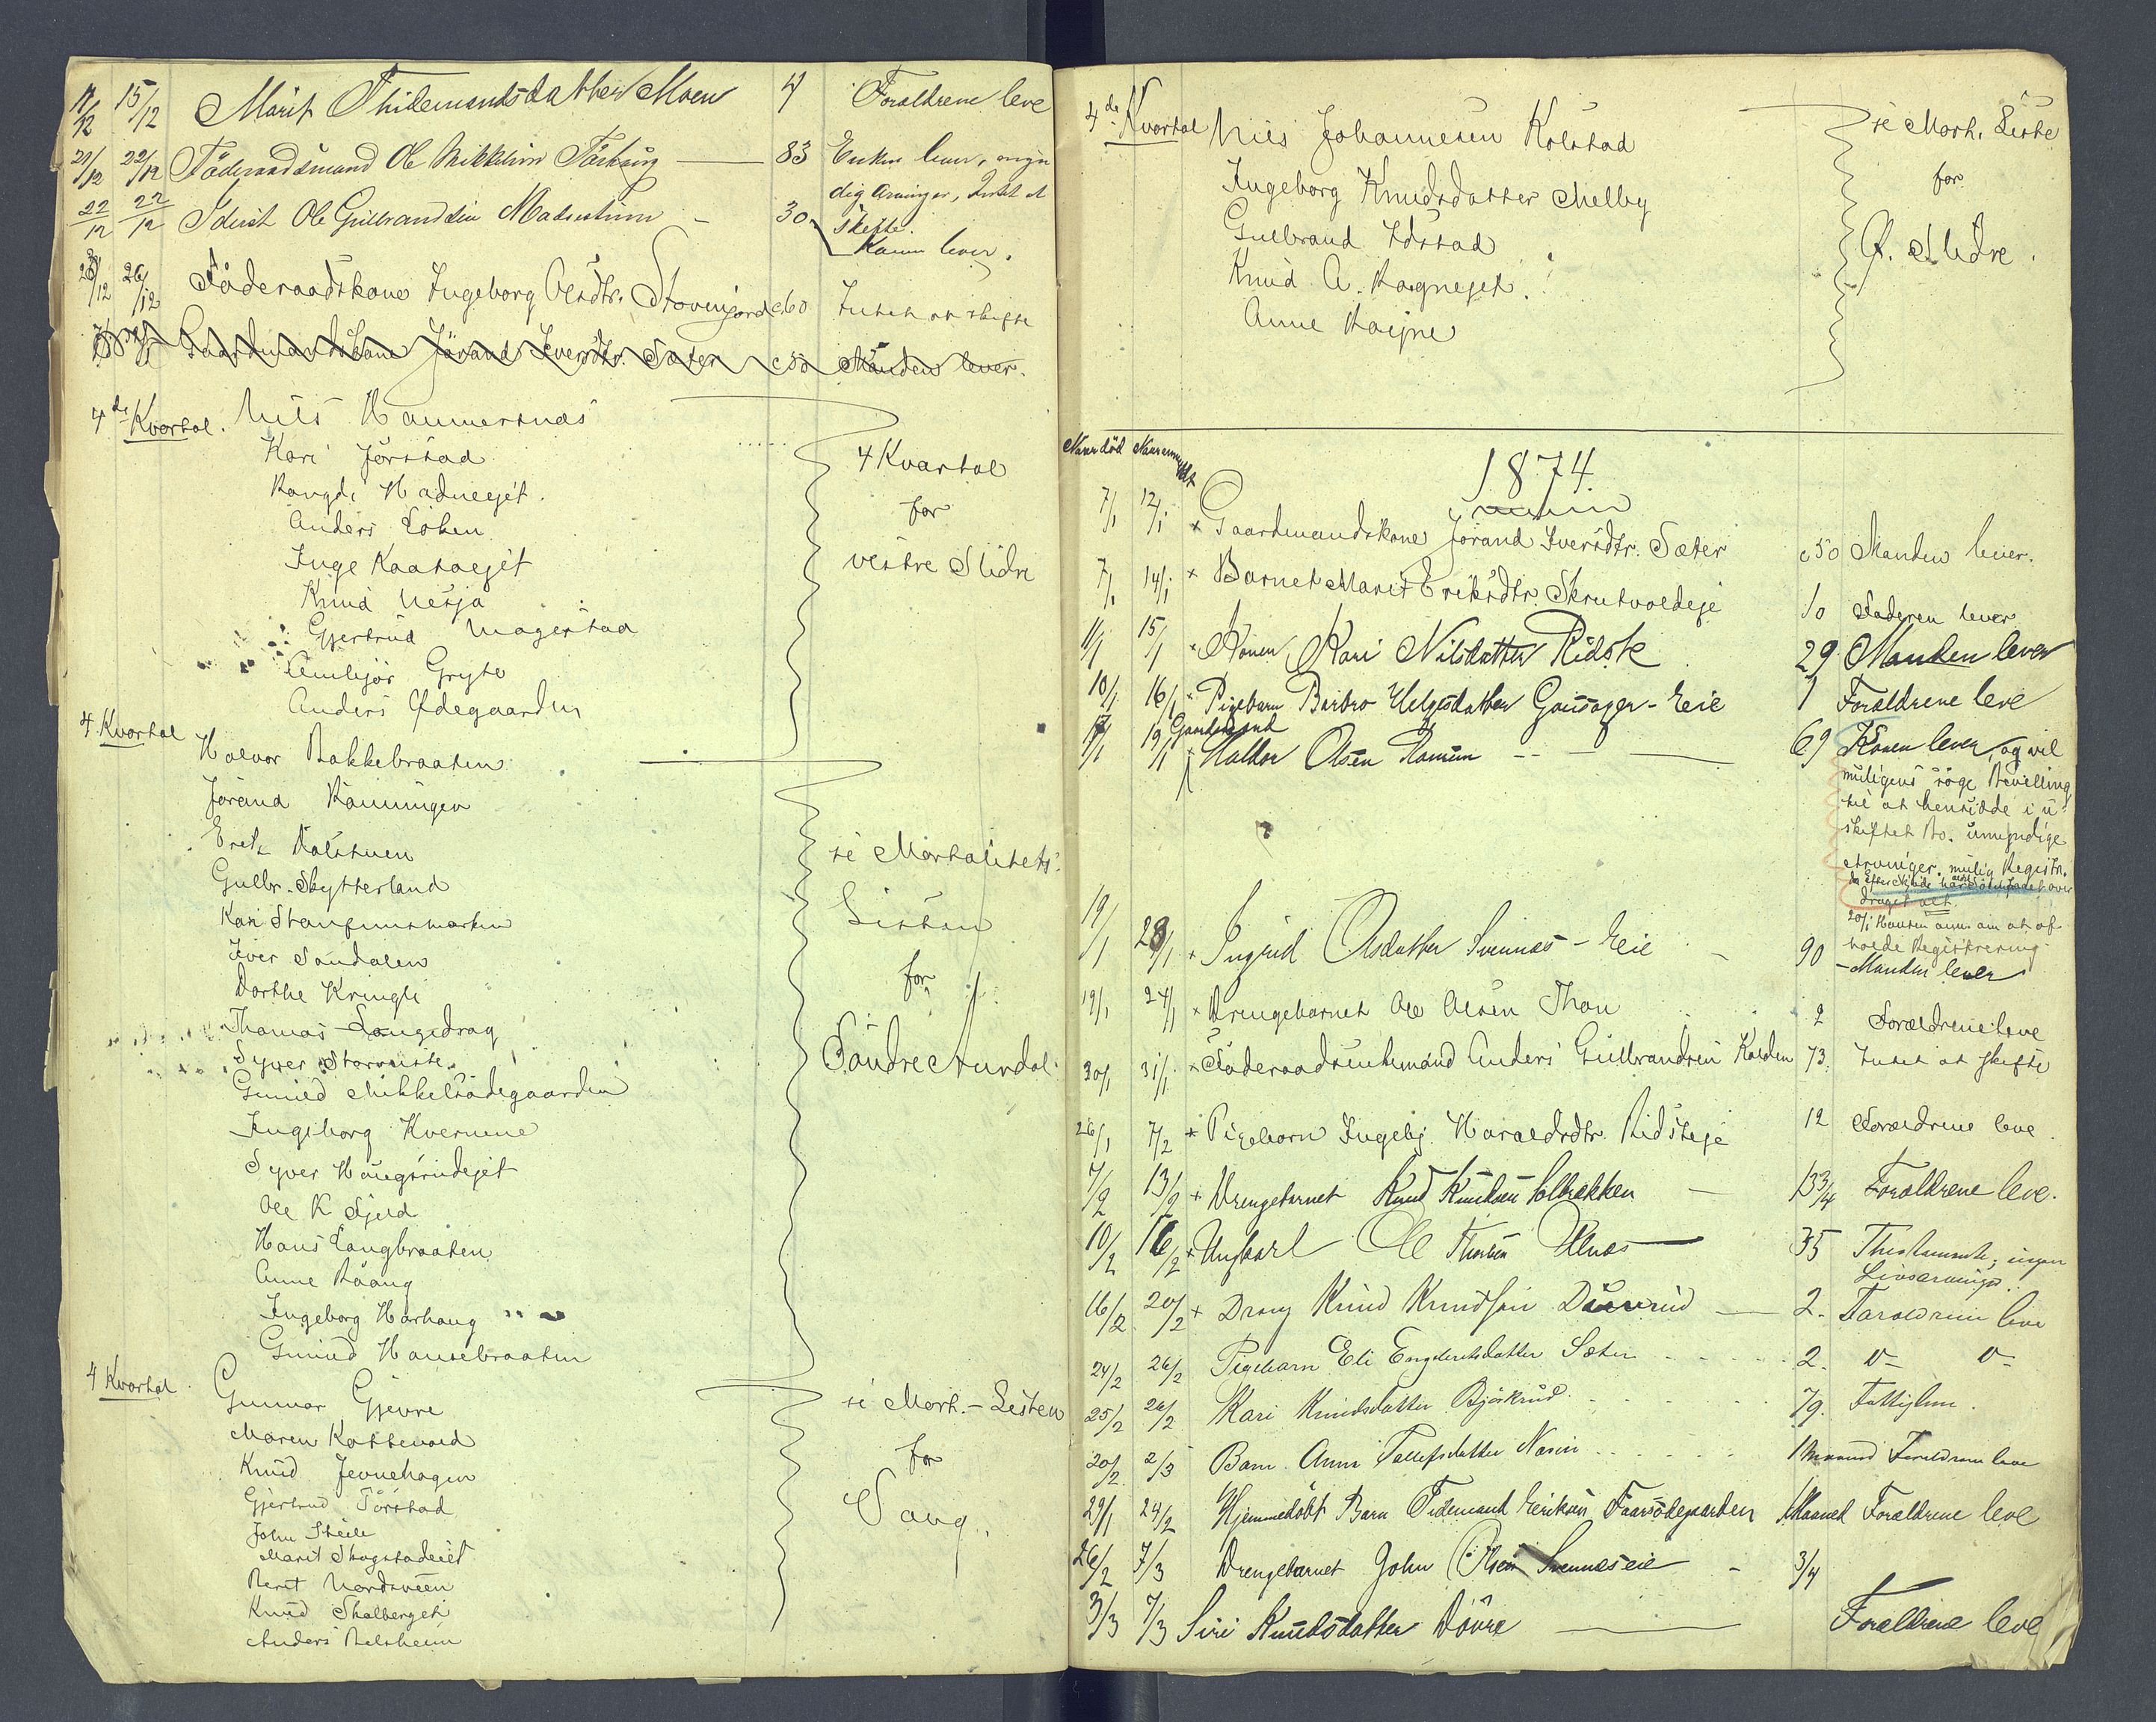 17/12 15/12 Marit Thidemandsdatter Moen 4 Forældrene leve
20/12 22/12 Föderaadsmand Ole Mikkelsen 83 Enken lever, myn
dig Arvinger, Intet at
skifte.
22/12 22/12 Idiot Ole Gulbrandsen 30 Konen lever.
23/12 26/12 Föderaadskone Ingeborg Olsdtr. Stovenjord c 60 Intet at skifte
Gaardmandskone Jörand Iversdtr. Sæter c 50 Manden lever.
4de Kvartal. Nils Hammersnæs
Kari Jörstad
Rangdi Hadneejet.
Anders Löken
Inge Kaataejet
Knud Nesja
Gjertrud Magestad
Gryte
Anders Ödegaarden
4 Kvartal
for
vestre Slidre
4 Kvartal Halvor Bakkebraaten
Jörand Rönningen
Dalstuen
Gulbr. Skytterland
Kari
Iver Sandalen
Dorthe Kringli
Thomas Langedrag
Syver
Gunild Mikkelsödegaarden
Ingeborg Kvernene
Syver Haugsrudejet
Ole K Fjeld
Hans Langbraaten
Anne Raaug
Ingeborg Harhaug
Gunild Hansebraaten
se Mortalitets
Listen
for
Söndre Aurdal.
4 Kvartal Gunnar Gjevre
Maren Kattevold
Knud Jevnehagen
Gjertrud Törstad
John Steile
Marit Skogstadeiet
Beret Nordsveen
Knud Skalberget
Anders Belsheim
se Mort.-Listen
for
Vang.
4de Kvartal Nils Johannesen Kolstad
Ingeborg Knudsdatter Melby
Gulbrand Idstad
Knud A. Rogneejet.
Anne Rogne
se Mort. Liste
for
Ö. Slidre.
Naar död Naar anmeldt
1874
7/1 12/1 x Gaardmandskone Jörand Iversdtr. Sæter c 50 Manden lever.
7/1 14/1 x Barnet Marit Eriksdtr. Skrutvoldeje 10 Faderen lever
11/1 15/1 x Konen Kari Nilsdatter Ridste 29 Manden lever
10/1 16/1 x Pigebarn Barbro Helgesdatter Gausager-Eie 1 Forældrene leve
17/1 19/1 x Gaardmand
Haldor Olsen 69 Konen lever, og vil
muligens söge Bevilling
til at hensidde i u-
skiftet Bo. umyndige
Arvinger. mulig Registr.
20/1
holde Registrering
19/1 23/1 x Ingrid Olsdatter Svennæs-Eie 90 - Manden lever
19/1 24/1 x Drengebarnet Ole Olsen Thon 2 Forældrene leve
30/1 31/1 x Föderaadsenkemand Anders Gulbrandsen Kolden 73. Intet at skifte
26/1 7/2 x Pigebarn Ingebj. Haraldsdtr. Ridsteje 12 Forældrene leve.
7/2 13/2 x Drengebarnet Knud Knudsen Solbrekken 13 3/4 Forældrene leve.
10/2 16/2 x Ungkarl Ole Ulnæs 35 Testamente, ingen
Livsarvinger.
16/2 20/2 x Dreng Knud Knudsen 2. Forældrene leve
24/2 26/2 Pigebarn Eli Engebretsdatter Sæter 2. D- D-
25/2 26/2 Kari Knudsdatter Björkrud 79. Fattiglem.
20/2 2/3 Barn Anne 1 Maaned Forældrene leve
29/1 24/2 Hjemmedöbt Barn Tidemand Eriksen Faarsödegaarden 1 Maaned Forældrene leve
26/2 7/3 Drengebarnet John Olsen Svennæseie 3/4
3/3 7/3 Siri Knudsdatter Dövre Forældrene leve